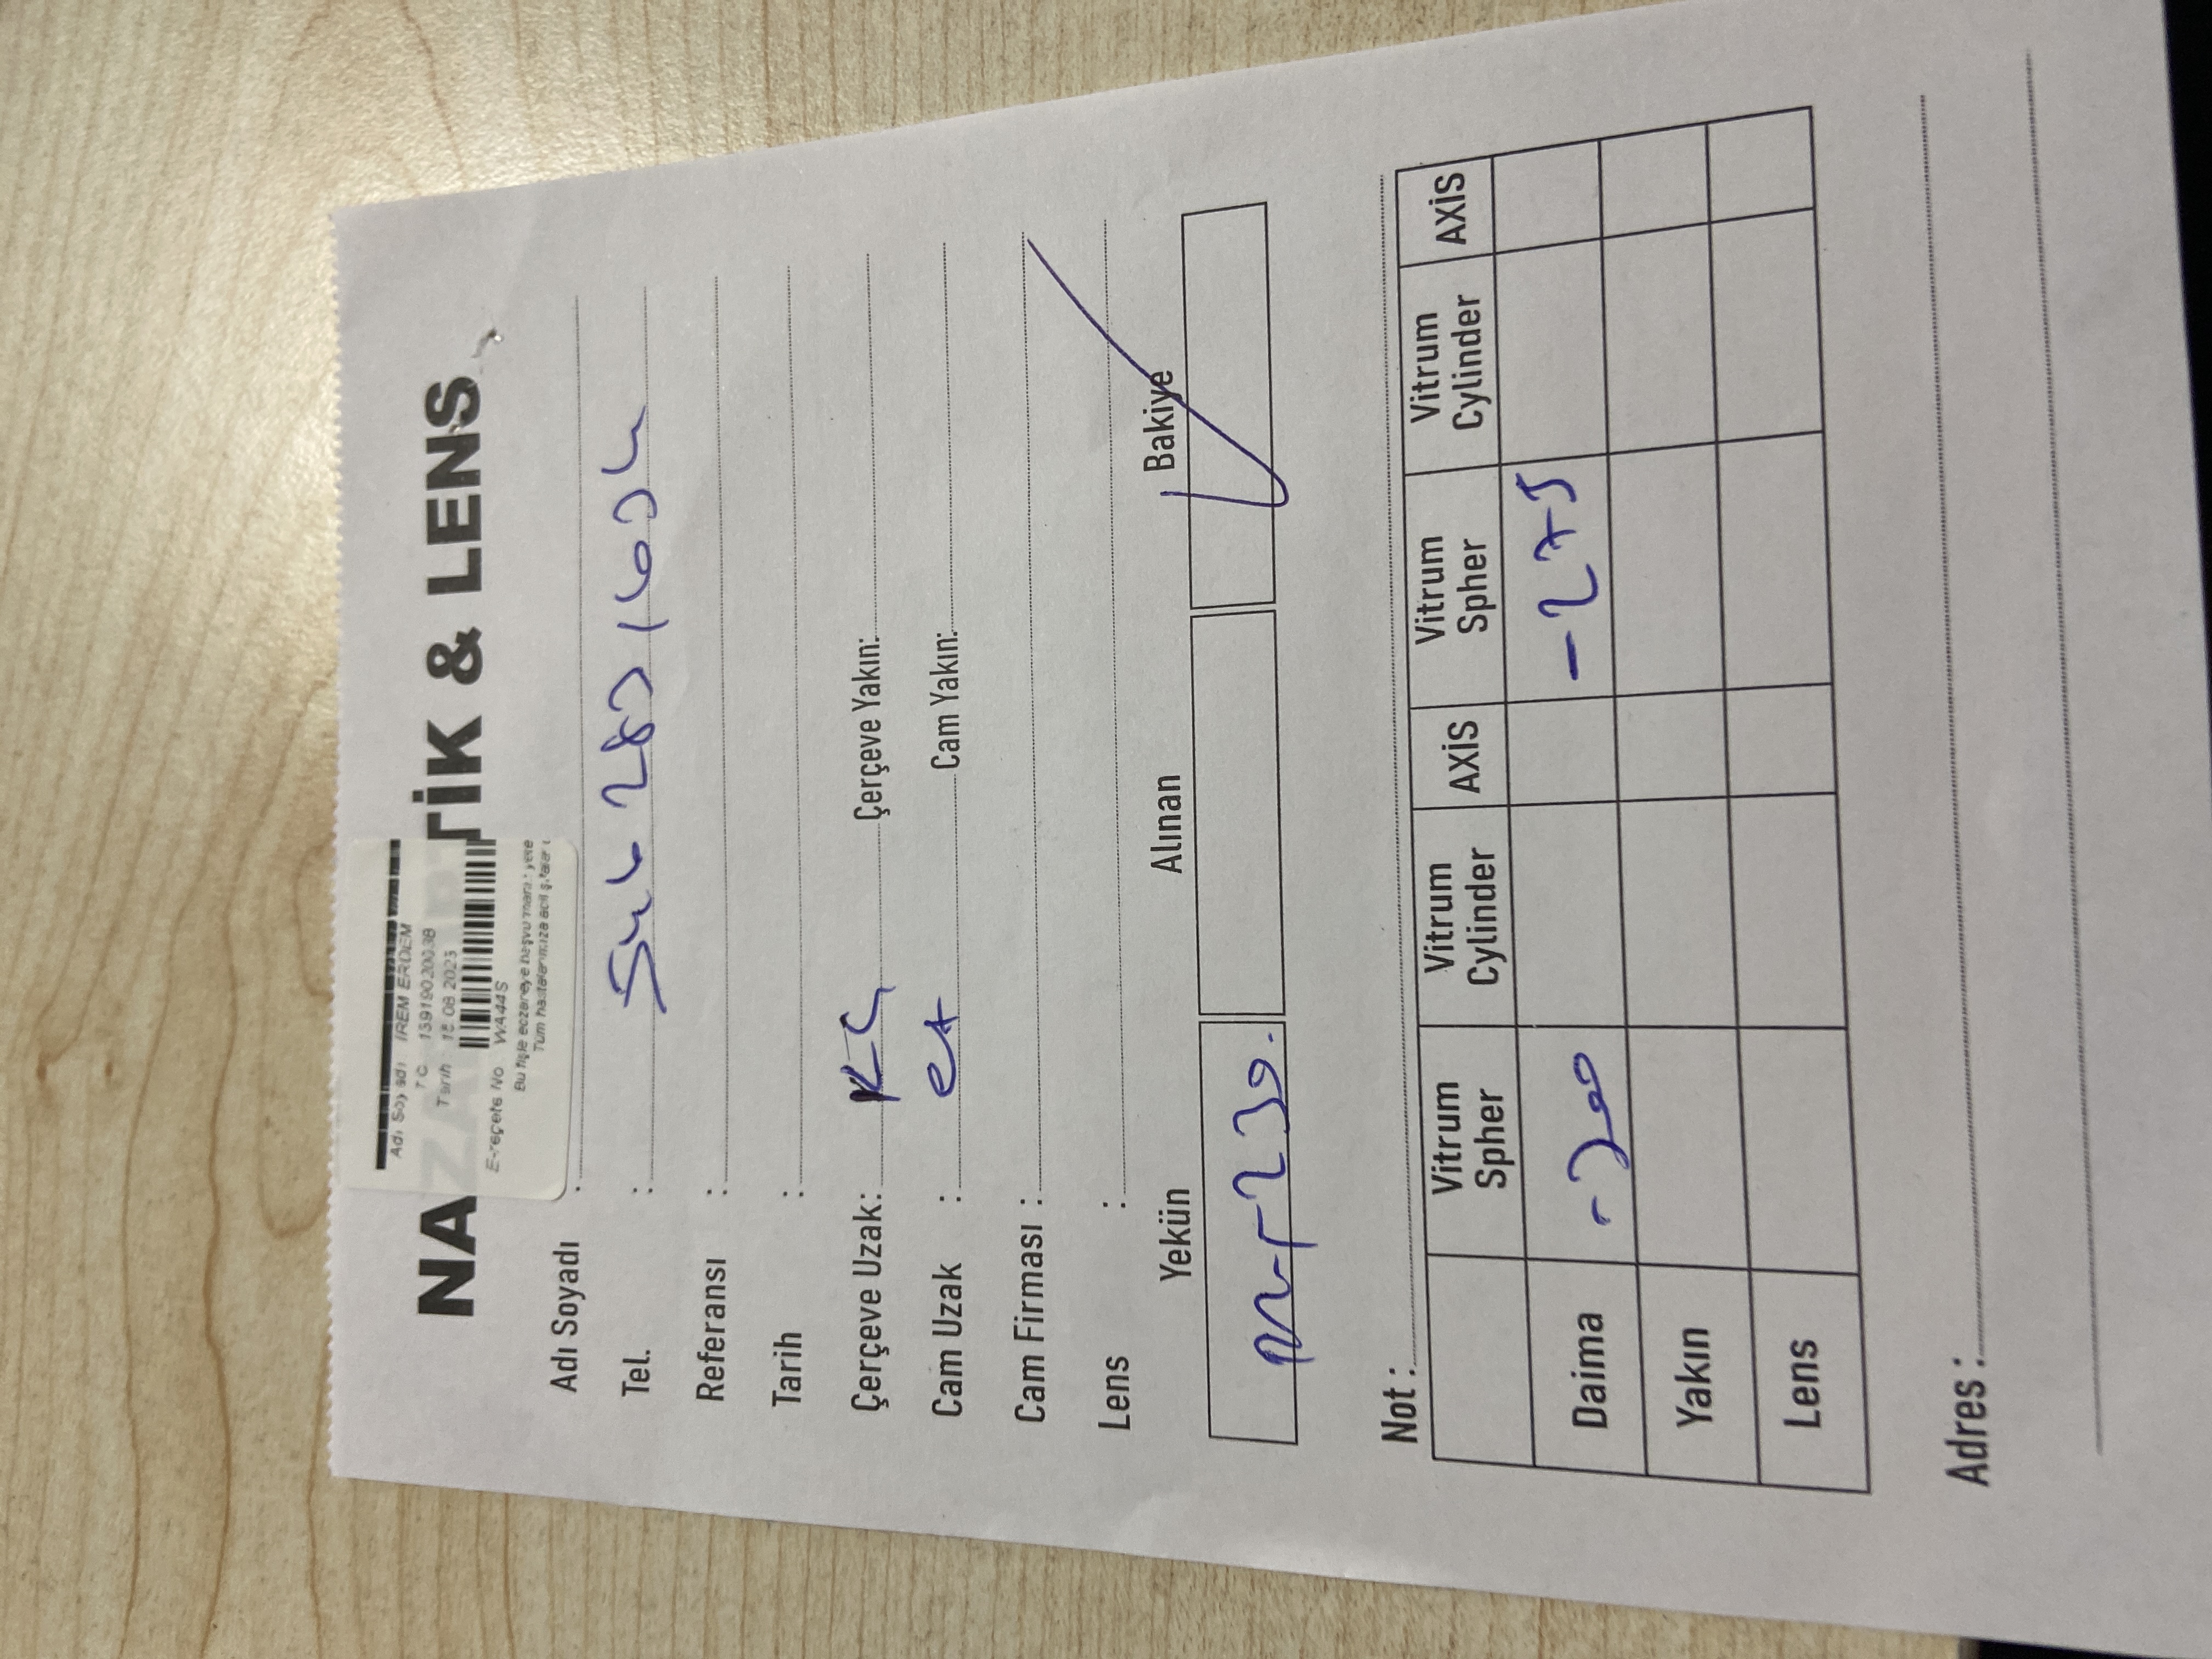 NAZAR OPTİK & LENS
Adı Soyadı İREM ERDEM
TC 13919020038
Tarih 15.08.2023
E-reçete No WA44S
Bu fişle eczaneye başvurmanız yete
Tüm hastalarımıza acil şifalar
Adı Soyadı :
Tel. : 546 283 1634
Referansı :
Tarih :
Çerçeve Uzak: KÇ Çerçeve Yakın:
Cam Uzak : Cam Yakın:
Cam Firması :
Lens :
Yekün Alınan Bakiye
230.
Not :
Vitrum Spher Vitrum Cylinder AXİS Vitrum Spher Vitrum Cylinder AXİS
Daima -300 -275
Yakın
Lens
Adres :